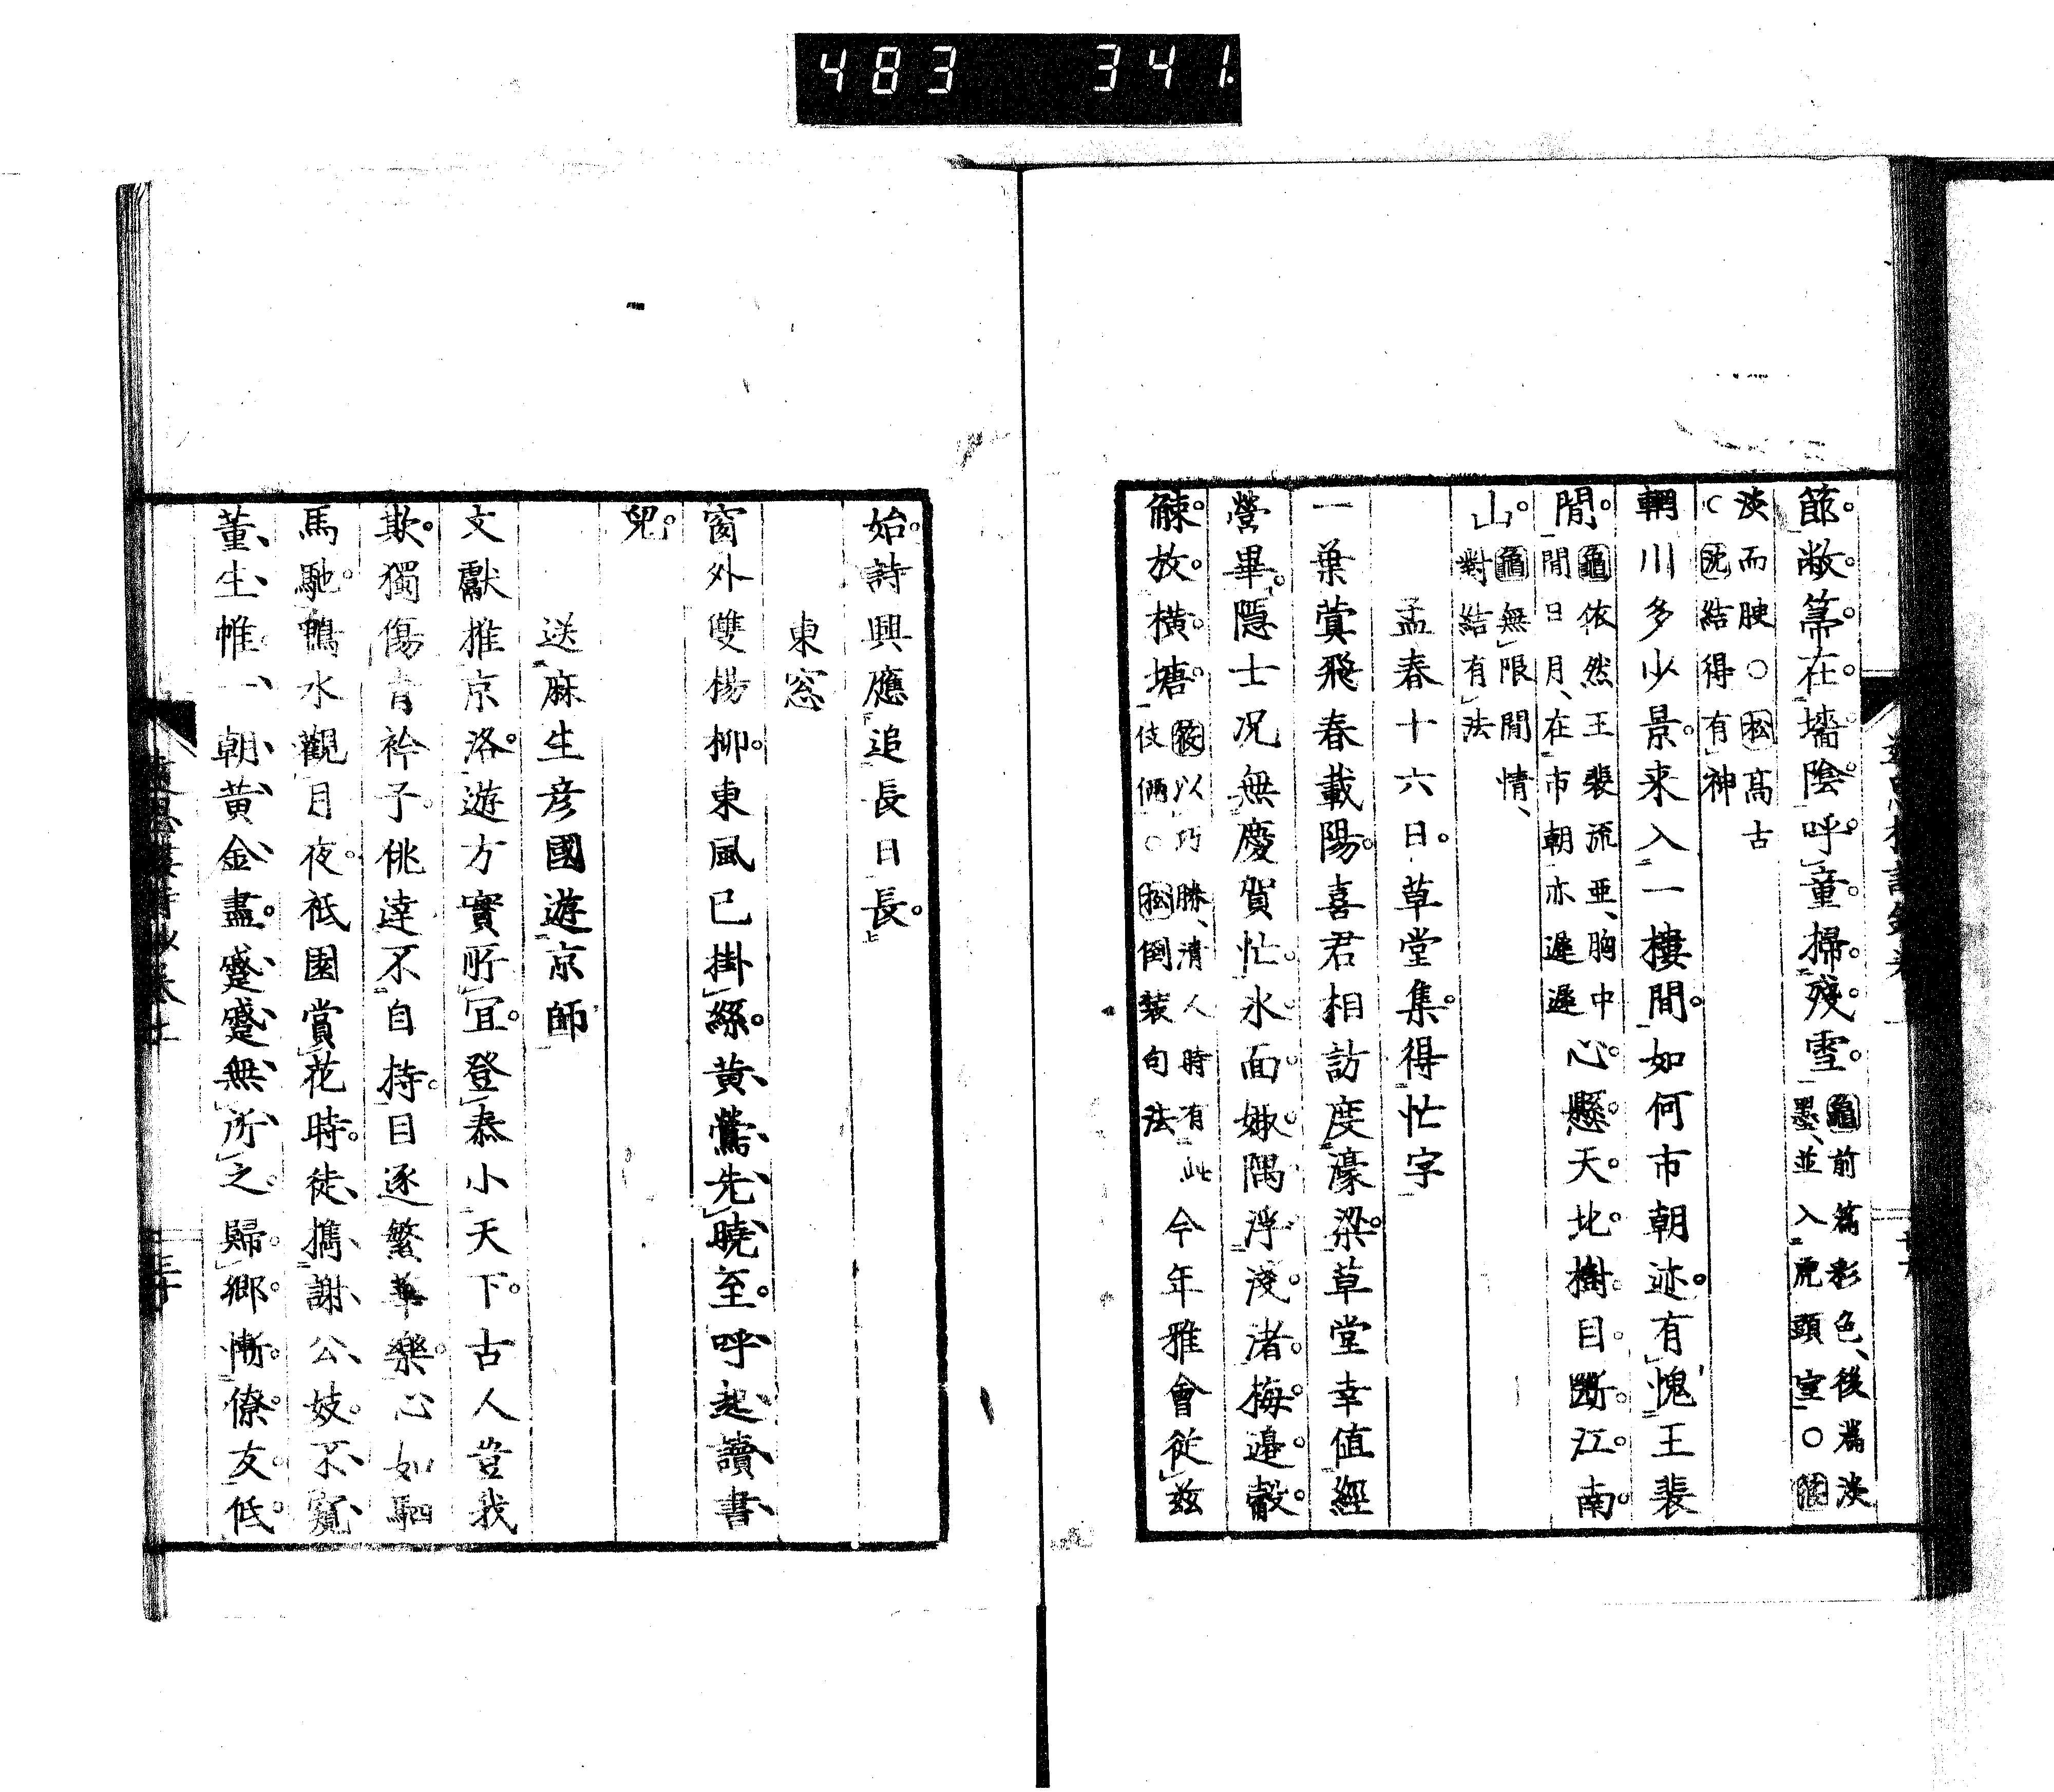 483 341.
篩。敝。箒。在。墻陰。呼。童。掃。殘。雪。龜前為彩色、後為淡
墨、並入虎頭室〇
淡而腴〇松高古
〇沈結得有神
輞川多少景。来入一樓間。如何市朝迹。有愧王裴
閒。龜依然王裴流亜、胸中
閒日月、在市朝亦遲遲
心。懸。天。地。樹。目。斷。江。南。
山。龜無限閒情、
對結有法
孟春十六日。草堂集。得忙字
一葉蓂飛春載陽。喜君相訪度濠梁。草堂幸值經
營畢。隱士况無慶賀忙。氷。面。娵。隅。浮。淺。渚。梅。邊。觳。
觫。放。横。塘。筱以巧勝、清人時有此
伎倆〇松倒装句法
今年雅會從茲
始。詩興應追長日長。
東窓
窗外雙楊柳。東風已掛絲。黄、鶯、先、曉、至。呼、起、讀、書、
兒。
送麻生彦國遊京師
文獻推京洛。遊方實所宜。登泰小天下。古人豈我
欺。獨傷青衿子。佻達不自持。目逐繁華樂。心如駟
馬馳。鴨水觀月夜。祇園賞花時。徒、攜、謝、公、妓。不、窺、
董、生、帷。一、朝、黄、金、盡。蹙、蹙、無、所、之。歸。郷。慚。僚。友。低。